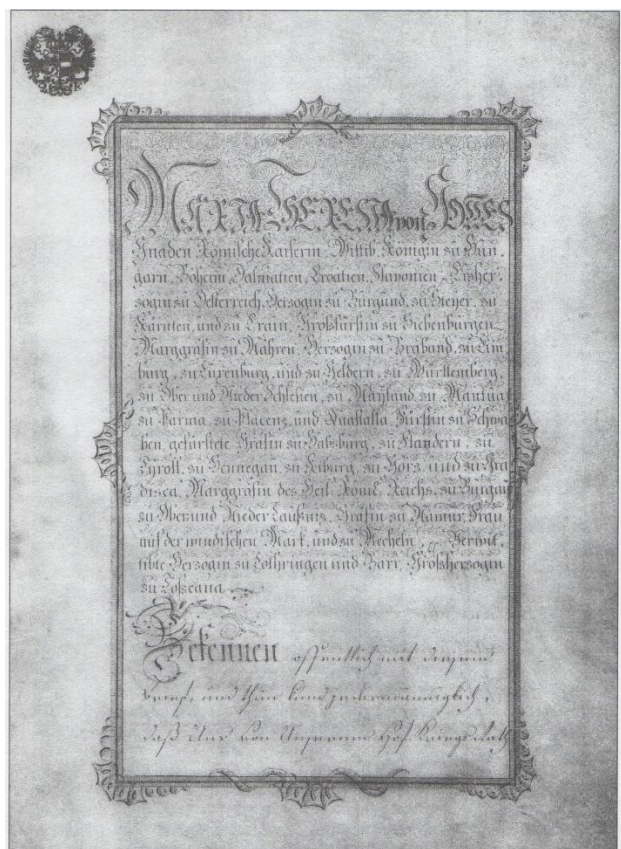 MARIA THERESIA von GOTTES
Gnaden Römische Kaiserin, Wittib, Königin zu Hun,
garn, Böheim, Dalmatien, Croatien, Slavonien, Erzher,
zogin zu Oesterreich, Herzogin zu Burgund, zu Steyer, zu
Kärnten, und zu Crain, Großfürstin zu Siebenbürgen
Marggräfin zu Mähren, Herzogin zu Braband, zu Lim,
burg, zu Luxenburg, und zu Geldern, zu Württemberg,
zu Ober und Nieder Schlesien, zu Mayland, zu Mantua,
zu Parma, zu Placenz, und Quastalla, Fürstin zu Schwa
ben, gefürstete Gräfin zu Habsburg, zu Flandern, zu
Tyroll, zu Hennegau, zu Kiburg, zu Görz, und zu Gra
disca, Marggräfin des Heil. Römi. Reichs, zu Burgau
zu Ober und Nieder Laußniz, Gräfin zu Namur, Frau
auf der windischen Mark, und zu Mecheln, Verwit,
tibte Herzogin zu Lothringen und Barr, Großherzogin
zu Toscana
Bekennen öffentlich mit diesem
Brief, und thun kund jedermänniglich,
daß Uns von Unserem Hof Kriegs Rath